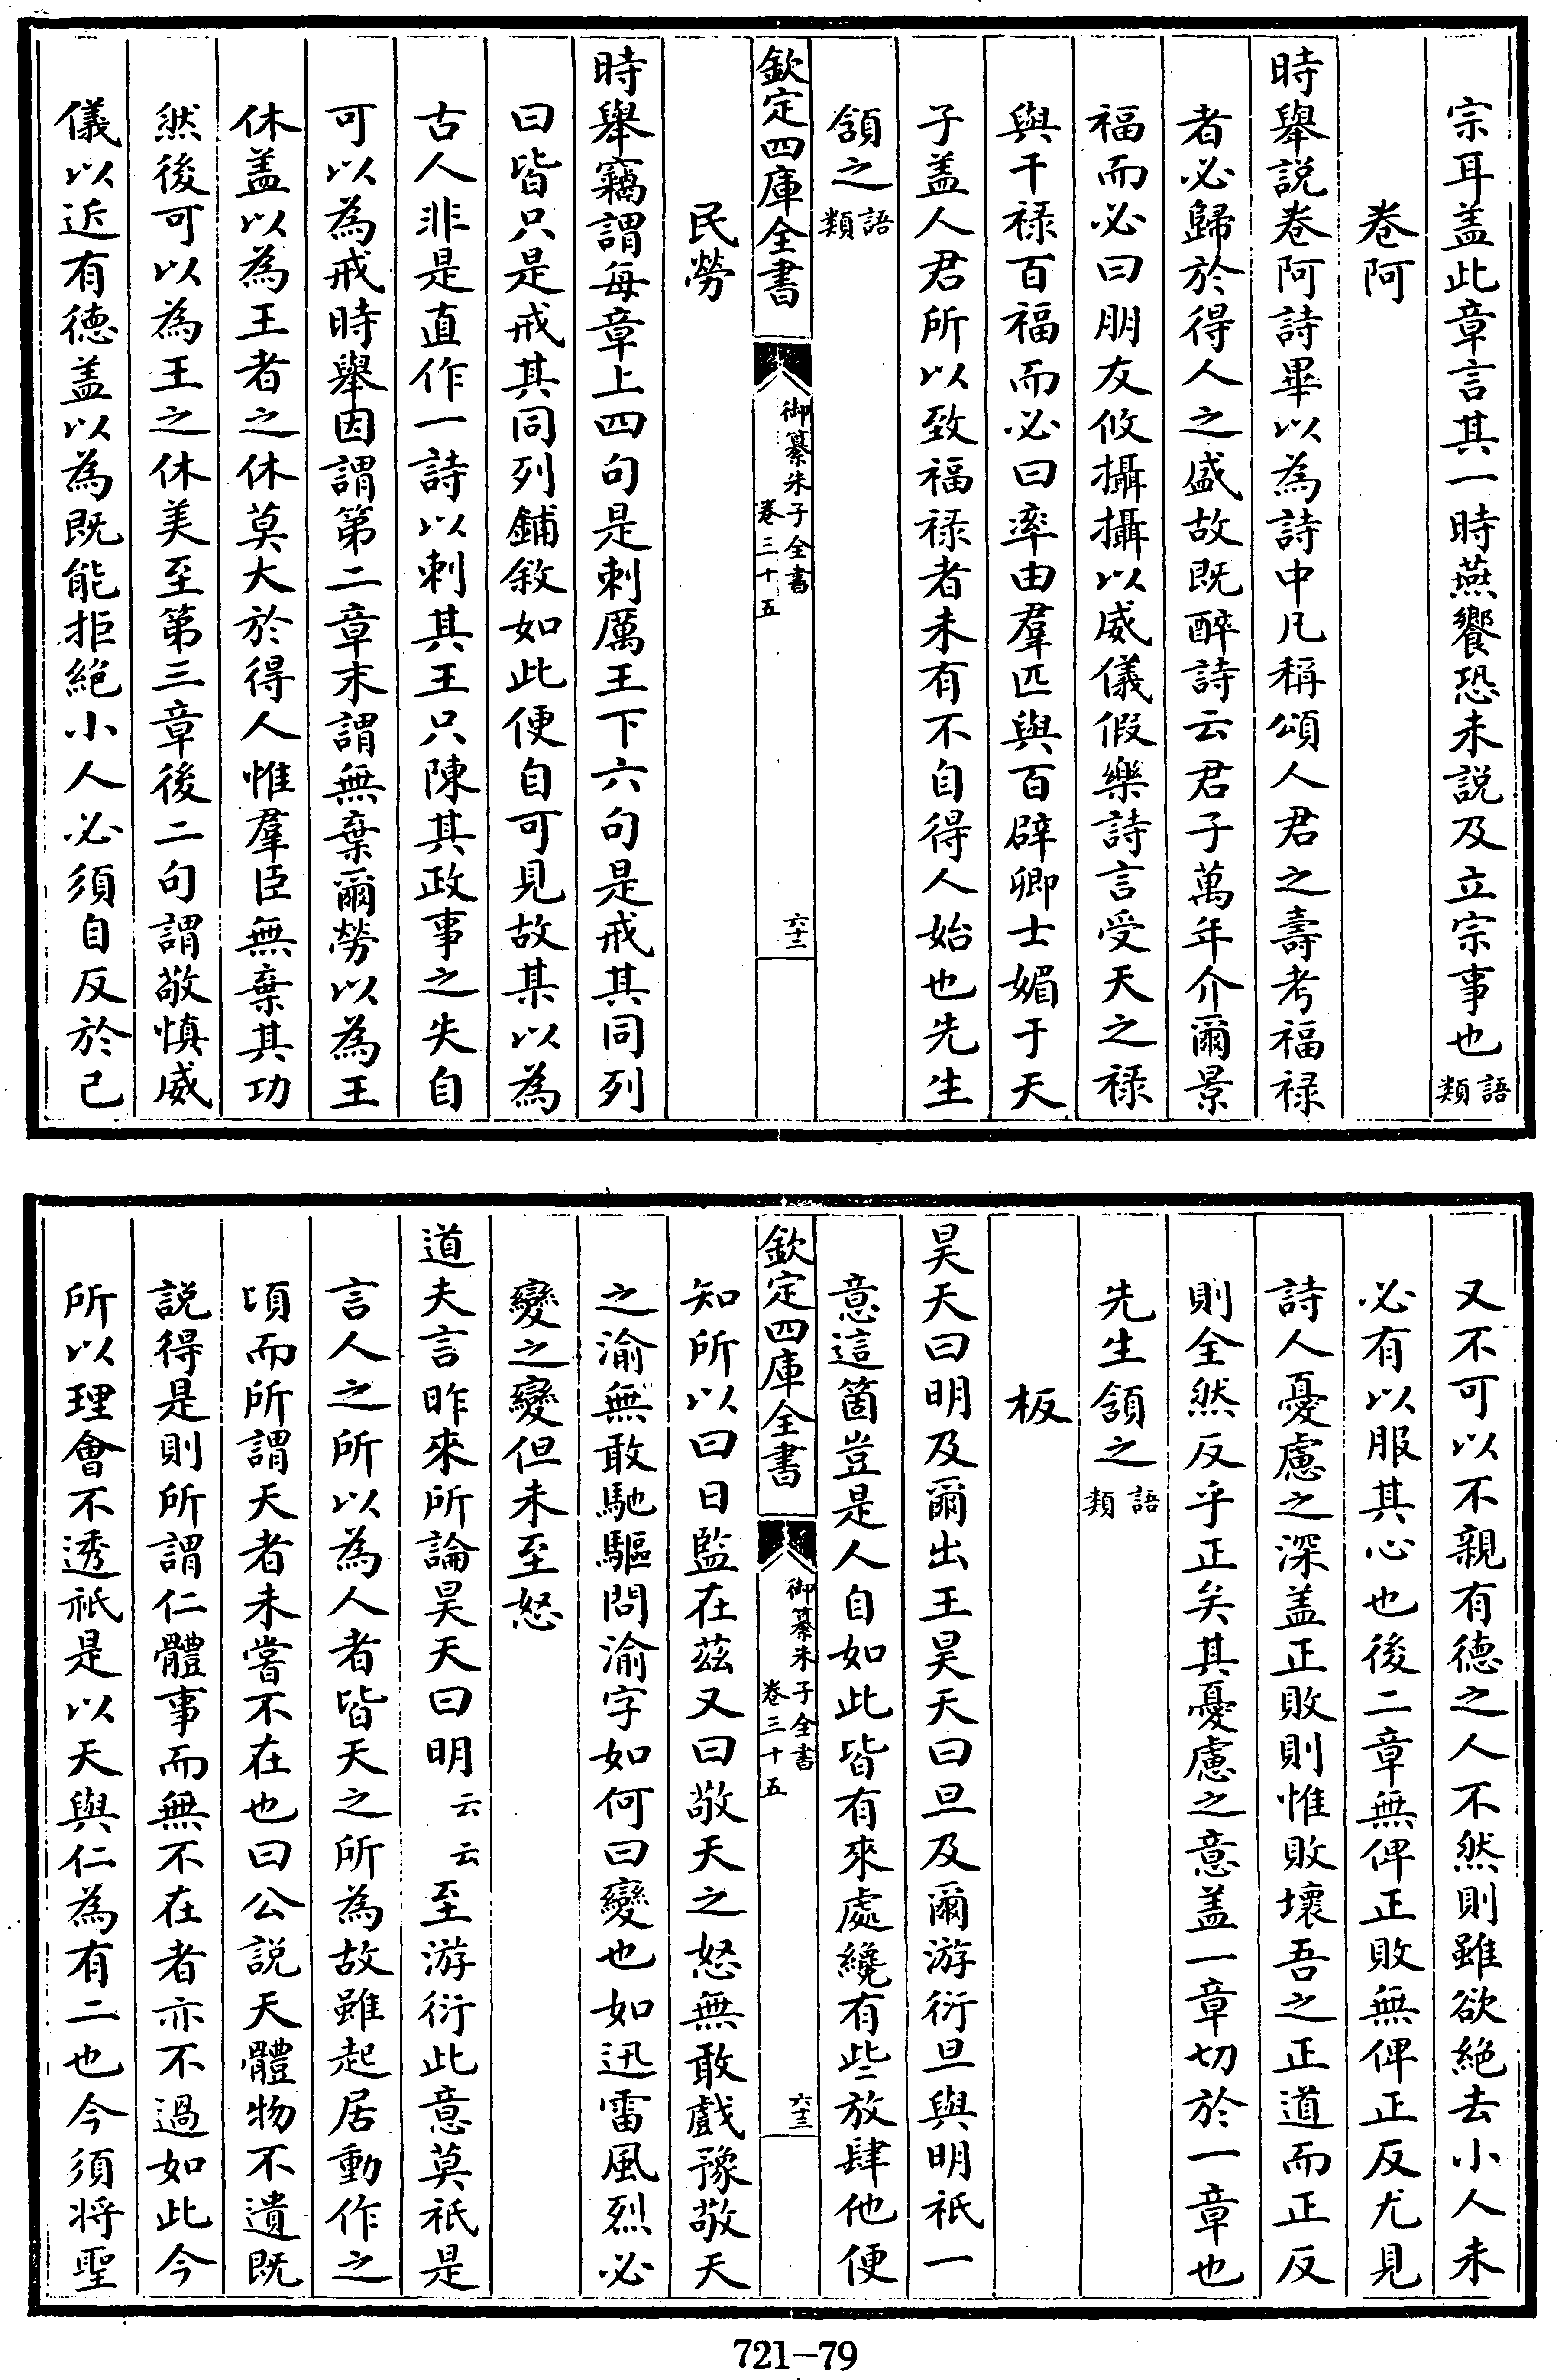 宗耳盖此章言其一時燕饗恐未説及立宗事也語類
卷阿
時舉説卷阿詩畢以為詩中凡稱頌人君之壽考福禄
者必歸於得人之盛故既醉詩云君子萬年介爾景
福而必曰朋友攸攝攝以威儀假樂詩言受天之禄
與干禄百福而必曰率由羣匹與百辟卿士媚于天
子盖人君所以致福禄者未有不自得人始也先生
頷之語類
欽定四庫全書
御纂朱子全書
卷三十五
六十二
民勞
時舉竊謂每章上四句是刺厲王下六句是戒其同列
曰皆只是戒其同列鋪敘如此便自可見故某以為
古人非是直作一詩以刺其王只陳其政事之失自
可以為戒時舉因謂第二章末謂無棄爾勞以為王
休盖以為王者之休莫大於得人惟羣臣無棄其功
然後可以為王之休美至第三章後二句謂敬慎威
儀以近有德盖以為既能拒絶小人必須自反於己
又不可以不親有德之人不然則雖欲絶去小人未
必有以服其心也後二章無俾正敗無俾正反尤見
詩人憂慮之深盖正敗則惟敗壞吾之正道而正反
則全然反乎正矣其憂慮之意盖一章切於一章也
先生頷之語類
板
昊天曰明及爾出王昊天曰旦及爾游衍旦與明祇一
意這箇豈是人自如此皆有來處纔有些放肆他便
欽定四庫全書
御纂朱子全書
卷三十五
六十三
知所以曰日監在茲又曰敬天之怒無敢戲豫敬天
之渝無敢馳驅問渝字如何曰變也如迅雷風烈必
變之變但未至怒
道夫言昨來所論昊天曰明云云至游衍此意莫祇是
言人之所以為人者皆天之所為故雖起居動作之
頃而所謂天者未嘗不在也曰公説天體物不遺既
説得是則所謂仁體事而無不在者亦不過如此今
所以理會不透祇是以天與仁為有二也今須将聖
721-79